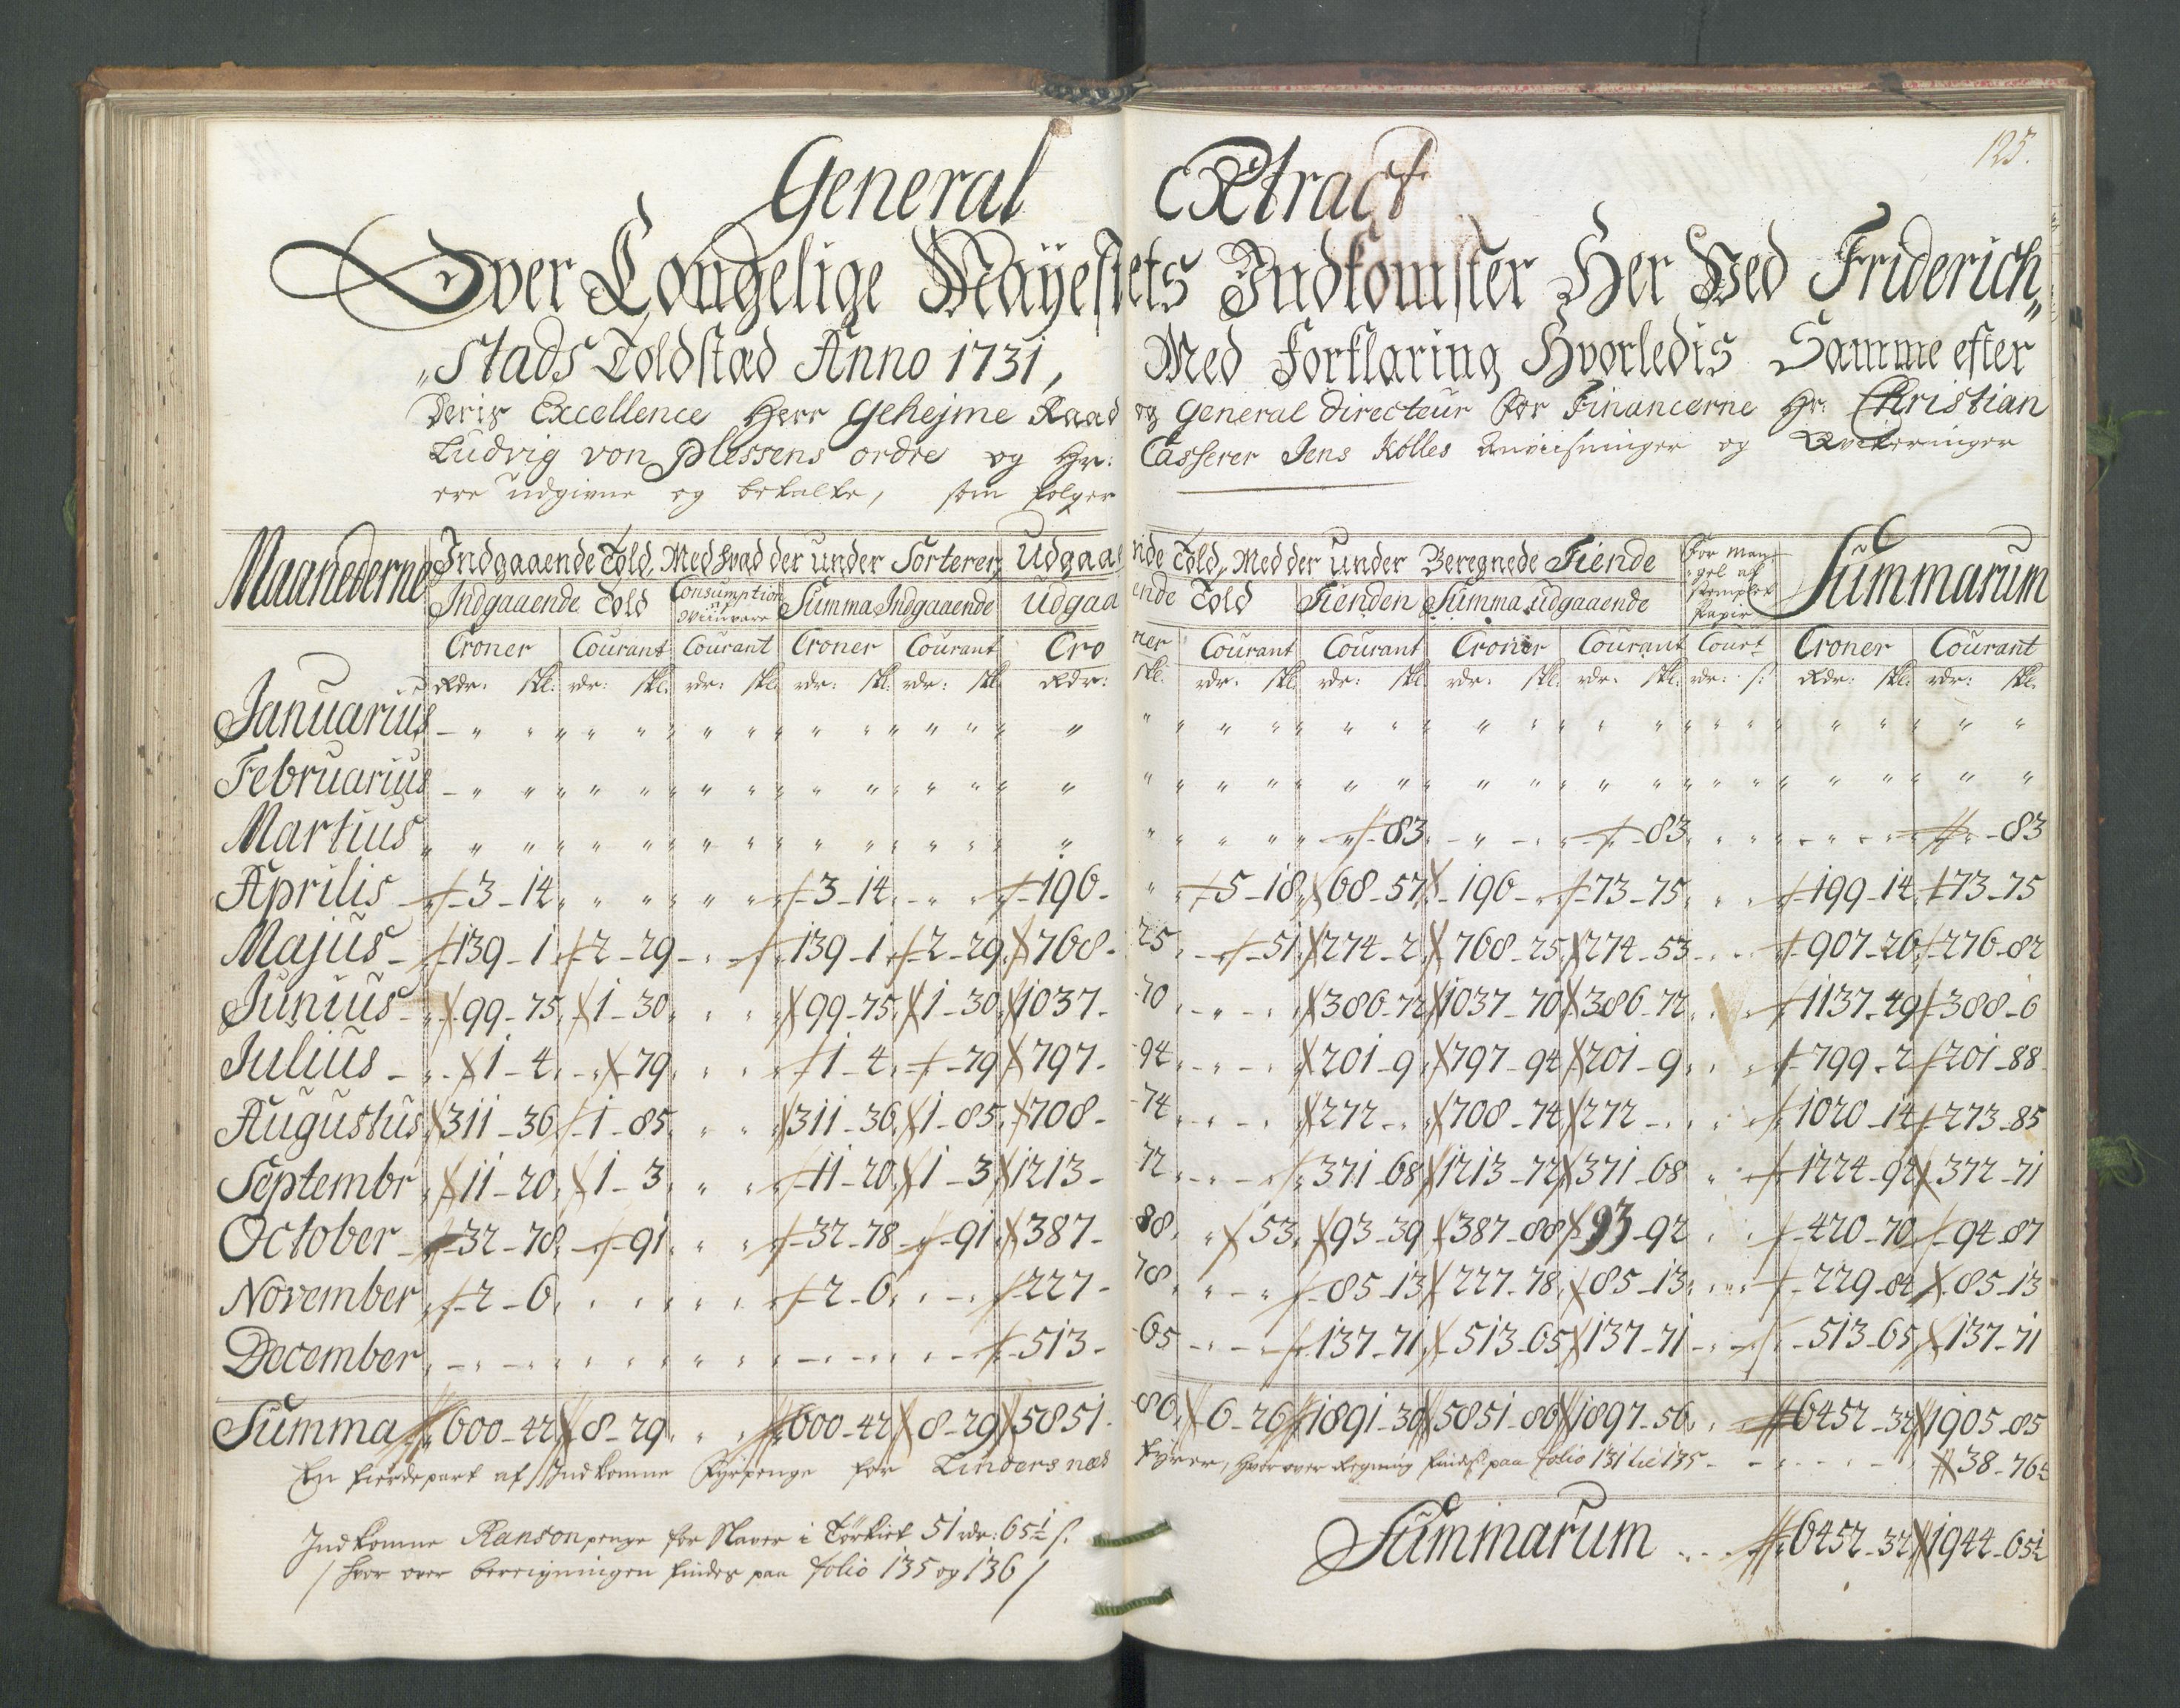 125.
General Extract
Over Kongelige Mayestets Indkomster Her Ved Friderich„
„Stads Toldstæd Anno 1731, Med Forklaring Hvorledis Samme efter
Deris Excellence Herr Gehejme Raad og General Directeur for Financerne Hr: Christian
Ludvig von Plessens ordre og Hr: Casserer Jens Kølles Anviisninger og Qviteringer
ere udgivne og betalte, som følger
Maanederne Indgaaende Told, Med hvad der under Sorterer, Udgaaende Told, Med der under Beregnede Tiende For Man- Summarum
gel af
Indgaaende Told Consumption af Viinvare Summa Indgaaende Udgaaende Told Tienden Summa udgaaende Stemplet Papir
Croner Courant Courant Croner Courant Croner Courant Courant Croner Courant Court Croner Courant
Rdr: skl: rdr: skl: rdr: skl: rdr: skl: rdr: skl: Rdr: skl: rdr: skl: rdr: skl: rdr: skl: rdr: skl: rdr: s: Rdr: skl: rdr: skl:
Januarius
Februarius
Martius 83 83 83
Aprilis 3-14 3-14 196- 5-18 68-57 196- 73-75 199-14 73-75
Majus 139-1 2-29 139-1 2-29 768-25 51 274-2 768-25 274-53 907-26 276-82
Junius 99-75 1-30 99-75 1-30 1037-70 386-72 1037-70 386-72 1137-49 388-6
Julius 1-4 79 1-4 79 797-94 201-9 797-94 201-9 799-2 201-88
Augustus 311-36 1-85 311-36 1-85 708-74 272 708-74 272 1020-14 273-85
Septembr 11-20 1-3 11-20 1-3 1213-72 371-68 1213-72 371-68 1224-92 372-71
October 32-78 91 32-78 91 387-88 53 93-39 387-88 93-92 420-70 94-87
November 2-6 2-6 227-78 85-13 227-78 85-13 229-84 85-13
December 513-65 137-71 513-65 137-71 513-65 137-71
Summa 600-42 8-29 600-42 8-29 5851-86 6-26 1891-30 5851-86 1897-56 6452-32 1905-85
En fierdepart af Indkomne Fyrpenge for Lindersnæs Fyrer, hvor over Regning findes paa folio 131 til 135 38-76½
Summarum 6452-32 1944-65½
Indkomne Ranson penge for Slaver i Tørkiet 51 rdr: 65½ s:
/ hvor over beregningen findes paa folio 135 og 136 /